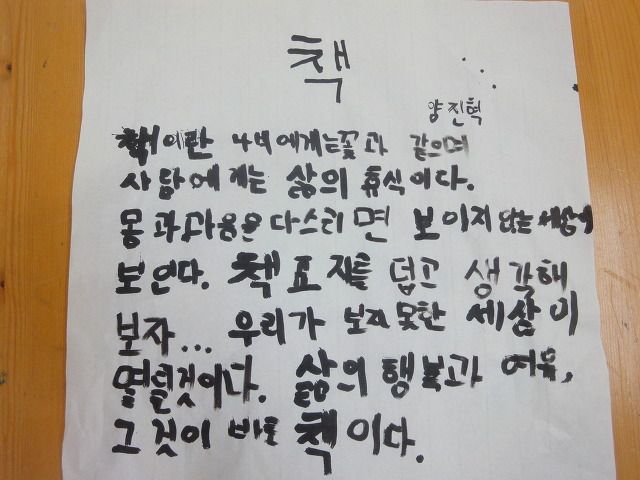 책
양진혁
책이란 나비에게는 꽃과 같으며
사람에게는 삶의 휴식이다.
몽과 마음은 다스리면 보이지 않는 세상이
보인다. 책 표지를 덥고 생각해
보자... 우리가 보지 못한 세상이
열릴것이다. 삶의 행복과 여유,
그것이 바로 책이다.